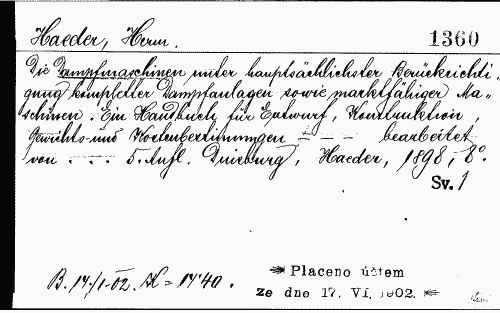 Haeder, Herm. 1360
Die Dampfmaschinen unter hauptsächlichster Berücksichti-
gung kompletter Dampfanlagen sowie marktfähiger Ma-
schinen. Ein Handbuch für Entwurf, Konstruktion,
Gewichts- und Kostenbestimmungen – – – bearbeitet
von . . . 5. Aufl. Duisburg, Haeder, 1898, 8°.
Sv. 1
B. 14/1-02. K = 14'40.
Placeno účtem
ze dne 17. VI. 1902.